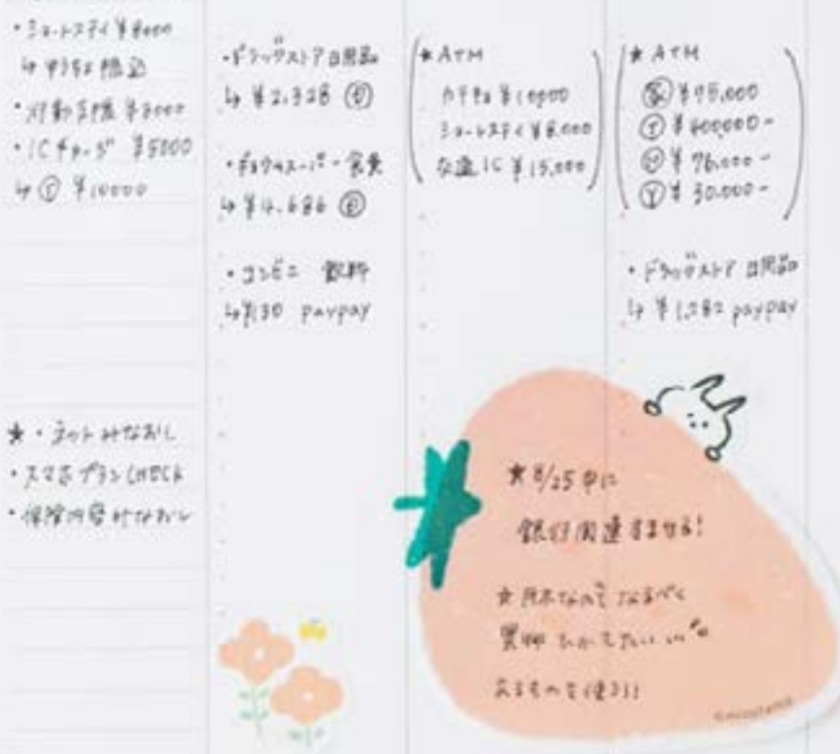 ・ショートステイ ¥8000
↳ ゆうちょ 振込
・自動車税 ¥3000
・ICチャージ ¥5000
↳ Ⓣ ¥10000
★・ネットみなおし
・スマホプランCHECK
・保険内容みなおし
・ドラッグストア日用品
↳ ¥2,328
・ギョウムスーパー 食費
↳ ¥4,686
・コンビニ 飲料
↳ ¥130 paypay
★ATM
¥10,000
ショートステイ ¥8,000
交通IC ¥15,000
★ATM
¥95,000
Ⓣ ¥400,000-
¥76,000-
Ⓨ ¥30,000-
・ドラッグストア 日用品
↳ ¥1,282 paypay
★8/25中に
銀行関連すませる!
★月末なのでなるべく
買物ひかえたい
あるものを使う!!